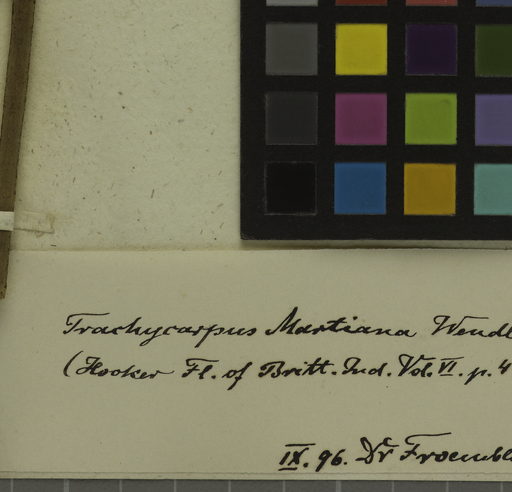 Trachycarpus Martiana Wendl
(Hooker Fl. of Britt. Ind. Vol. VI. p. 4
IX. 96. Dr Froembl